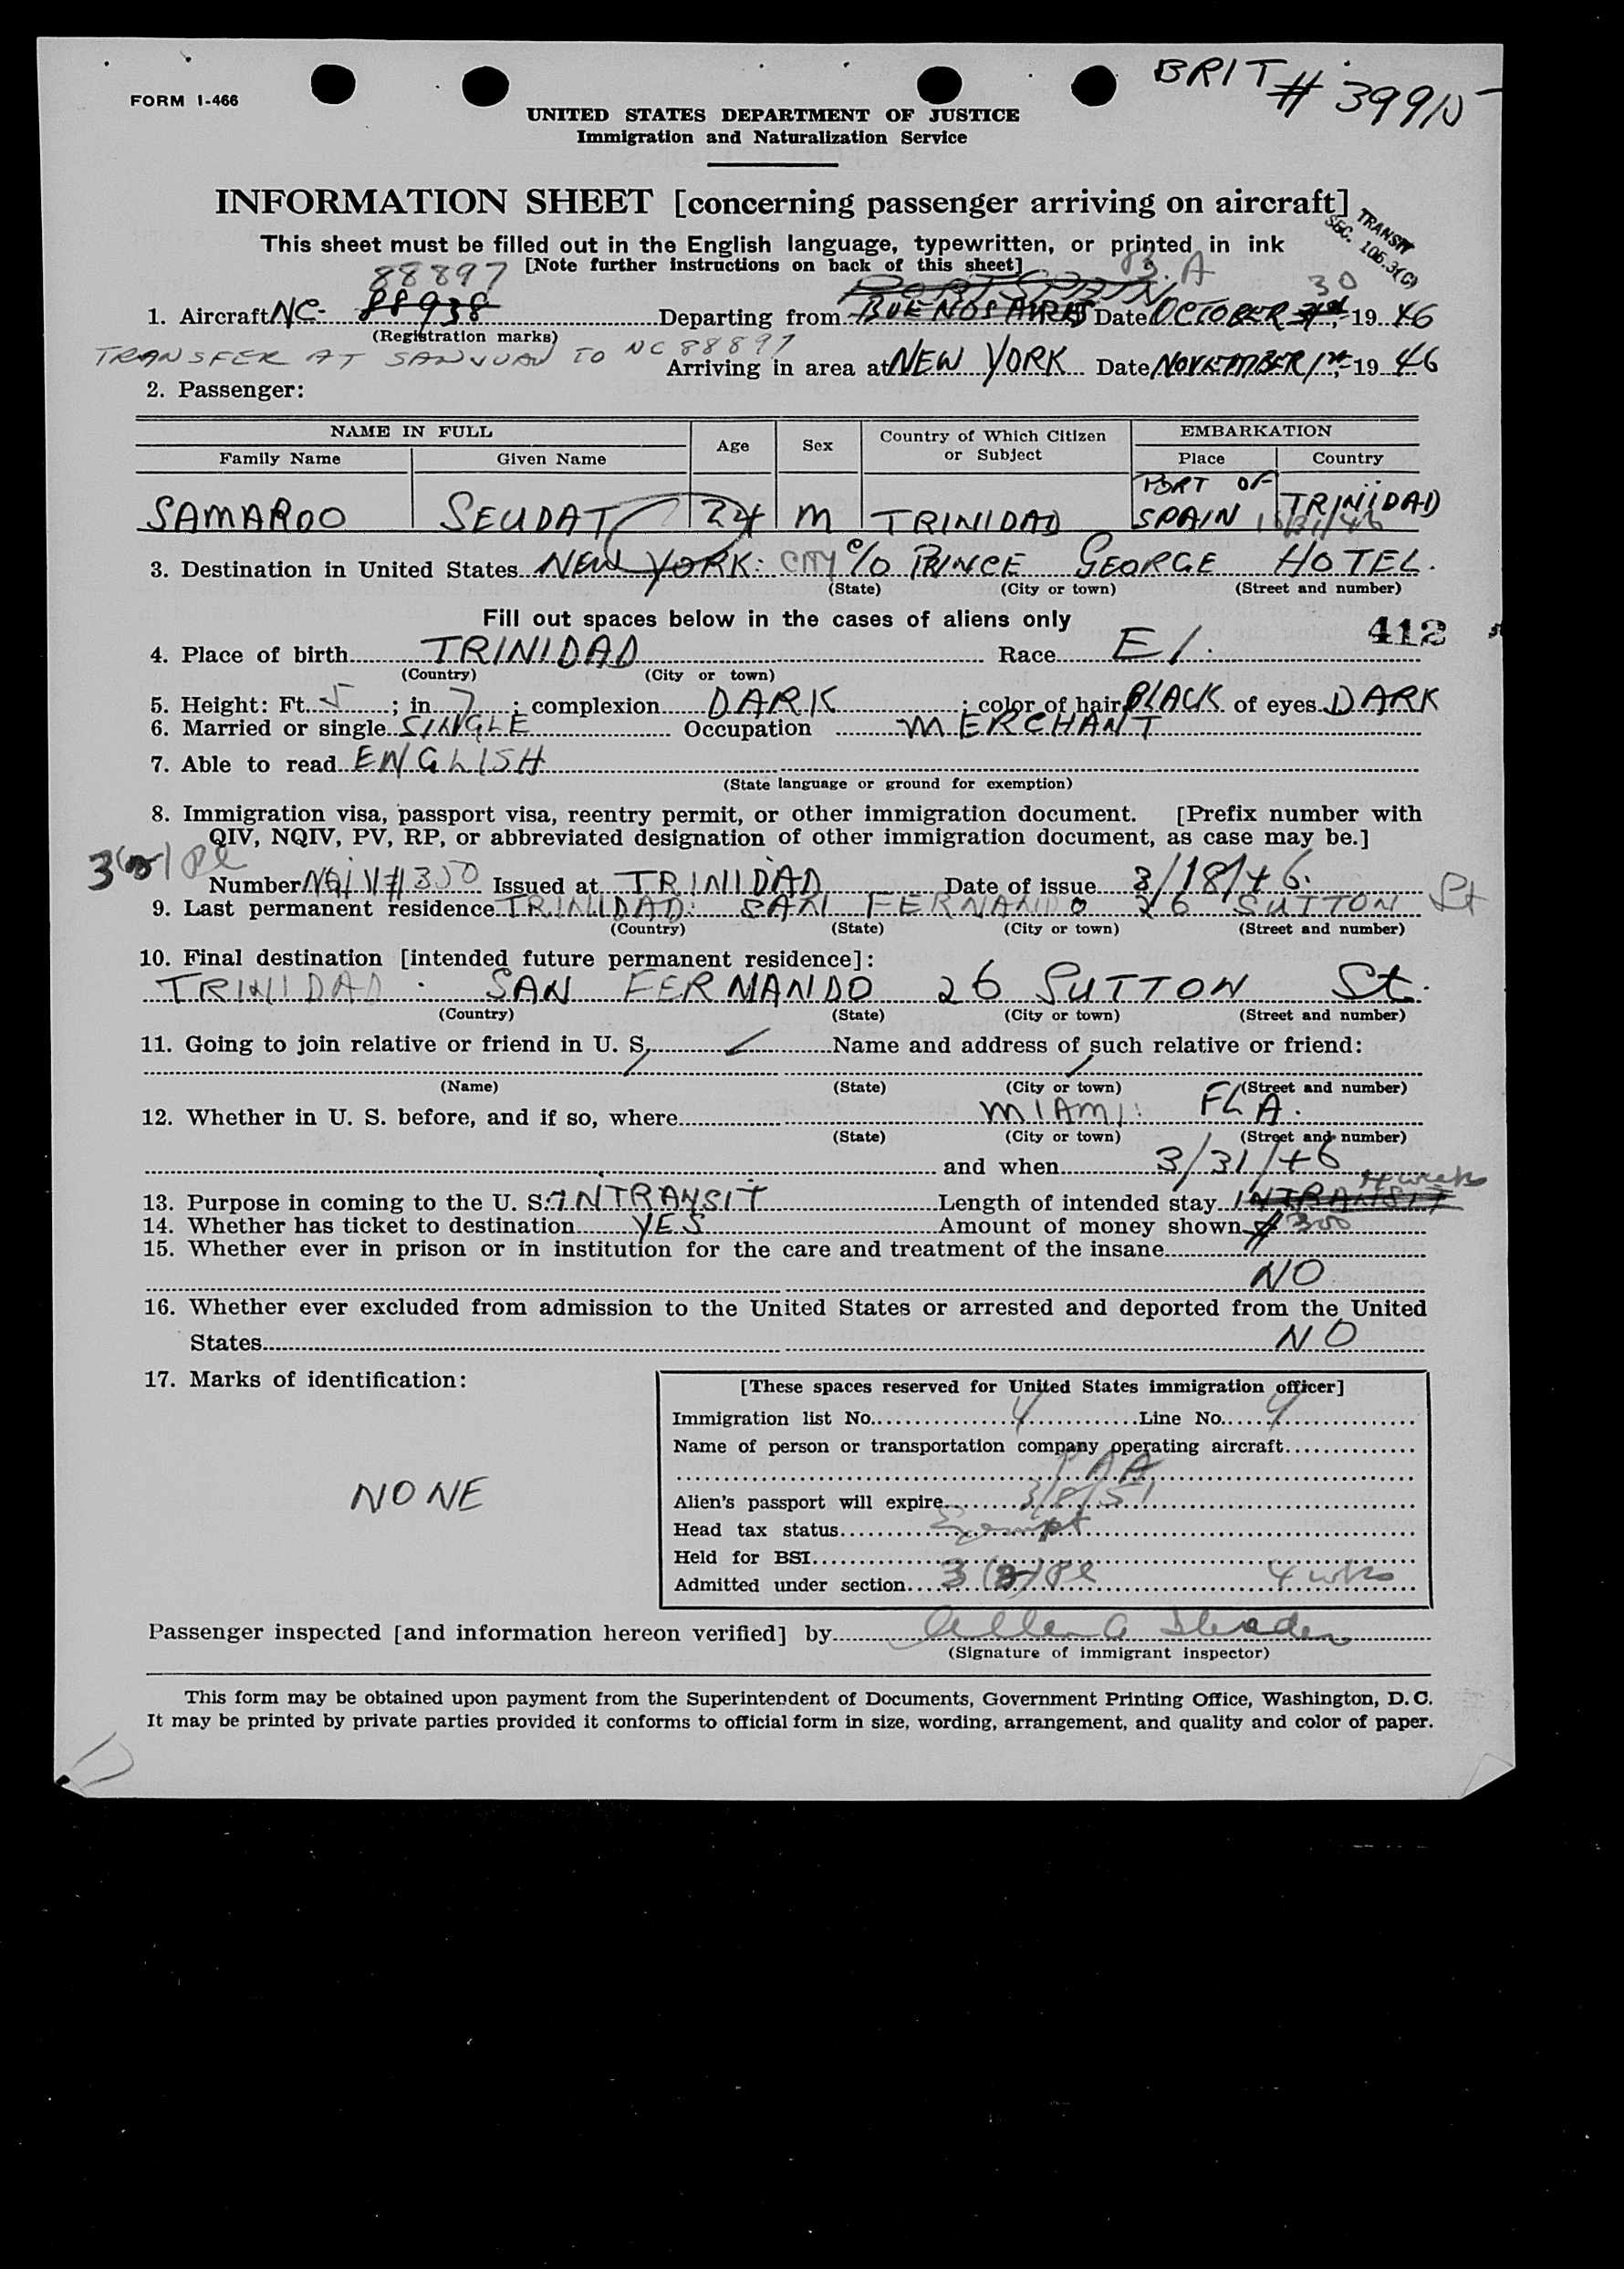 BRIT # 39915
FORM I-466
UNITED STATES DEPARTMENT OF JUSTICE
Immigration and Naturalization Service
INFORMATION SHEET [concerning passenger arriving on aircraft]
TRANSIT
SEC. 106.3(C)
This sheet must be filled out in the English language, typewritten, or printed in ink
[Note further instructions on back of this sheet]
88897 PORT SPAIN B.A 30
1. Aircraft NC- 88938 Departing from BUENOS AIRES Date OCTOBER 31st, 19 46
(Registration marks)
TRANSFER AT SANJUAN TO NC 88897
Arriving in area at NEW YORK Date NOVEMBER 1st, 19 46
2. Passenger:
NAME IN FULL Age Sex Country of Which Citizen or Subject EMBARKATION
Family Name Given Name Place Country
SAMAROO SEUDAT 24 M TRINIDAD PORT OF SPAIN TRINIDAD
10/31/46
3. Destination in United States NEW YORK: CITY c/o PRINCE GEORGE HOTEL.
(State) (City or town) (Street and number)
Fill out spaces below in the cases of aliens only
412
4. Place of birth TRINIDAD Race E I.
(Country) (City or town)
5. Height: Ft. 5; in. 7; complexion DARK; color of hair BLACK of eyes DARK
6. Married or single SINGLE Occupation MERCHANT
7. Able to read ENGLISH
(State language or ground for exemption)
8. Immigration visa, passport visa, reentry permit, or other immigration document. [Prefix number with
QIV, NQIV, PV, RP, or abbreviated designation of other immigration document, as case may be.]
Number NQIV # 350 Issued at TRINIDAD Date of issue 3/18/46.
9. Last permanent residence TRINIDAD: SAN FERNANDO 26 SUTTON St
(Country) (State) (City or town) (Street and number)
10. Final destination [intended future permanent residence]:
TRINIDAD . SAN FERNANDO 26 SUTTON St.
(Country) (State) (City or town) (Street and number)
11. Going to join relative or friend in U. S. Name and address of such relative or friend:
(Name) (State) (City or town) (Street and number)
12. Whether in U. S. before, and if so, where MIAMI: FLA.
(State) (City or town) (Street and number)
and when 3/31/46
4 weeks
13. Purpose in coming to the U. S. INTRANSIT Length of intended stay INTRANSIT
14. Whether has ticket to destination YES Amount of money shown $ 300
15. Whether ever in prison or in institution for the care and treatment of the insane
NO
16. Whether ever excluded from admission to the United States or arrested and deported from the United
States NO
17. Marks of identification:
NONE
[These spaces reserved for United States immigration officer]
Immigration list No. 4 Line No. 9
Name of person or transportation company operating aircraft
PAA
Alien's passport will expire 3/8/51
Head tax status Exempt
Held for BSI
Admitted under section 3(3) Pl 4 wks
Passenger inspected [and information hereon verified] by Allen A
(Signature of immigrant inspector)
This form may be obtained upon payment from the Superintendent of Documents, Government Printing Office, Washington, D. C.
It may be printed by private parties provided it conforms to official form in size, wording, arrangement, and quality and color of paper.